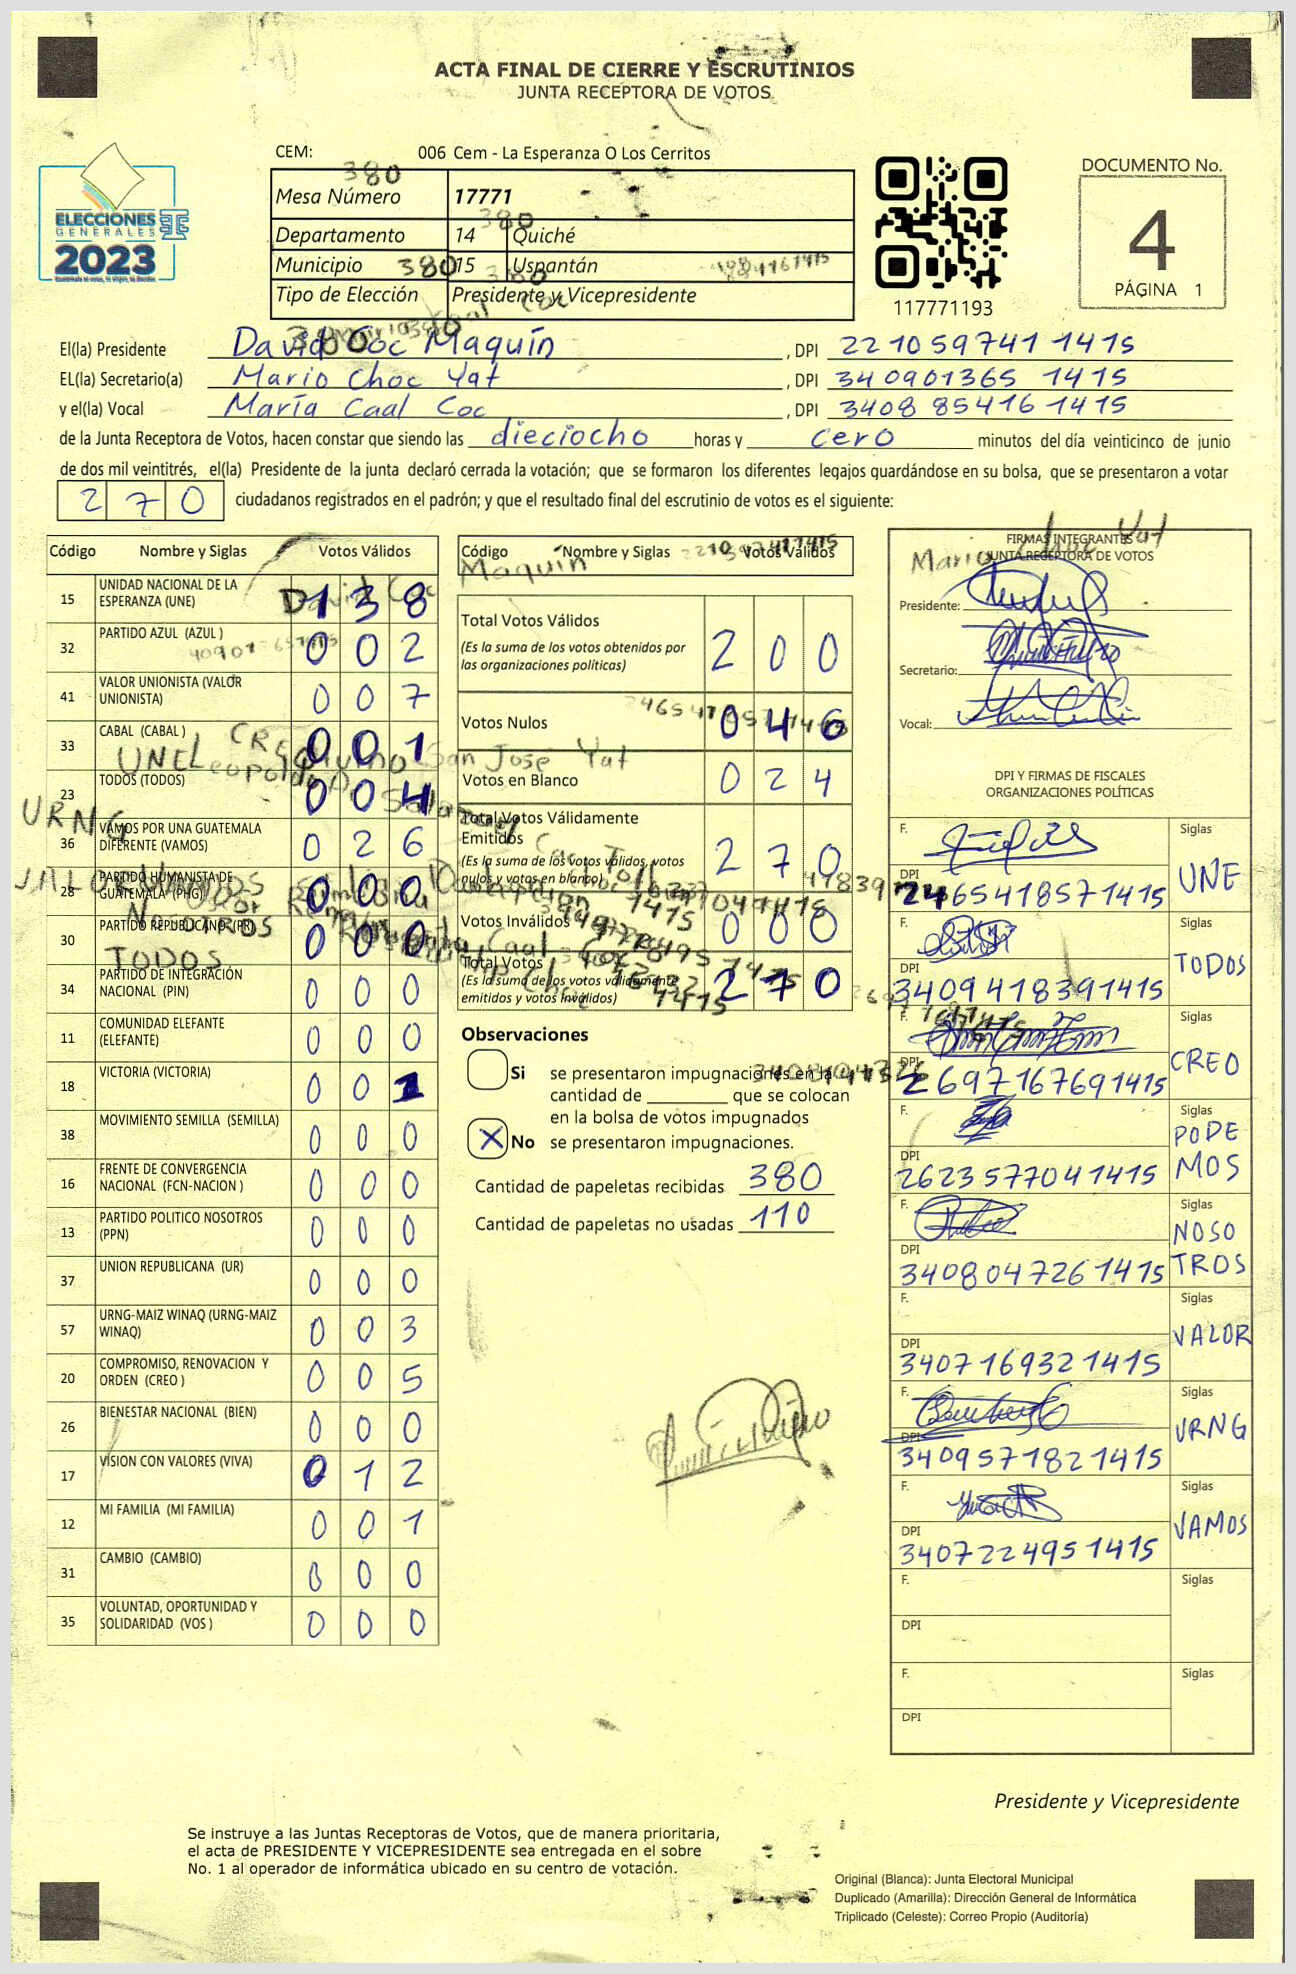 ACTA FINAL DE CIERRE Y ESCRUTINIOS
JUNTA RECEPTORA DE VOTOS
ELECCIONES
GENERALES
2023
CEM: 006 Cem - La Esperanza O Los Cerritos
380
Mesa Número 17771
380
Departamento 14 Quiché
Municipio 380 15 Uspantán
380
Tipo de Elección Presidente y Vicepresidente
117771193
DOCUMENTO No.
4
PÁGINA 1
El(la) Presidente David Coc Maquín , DPI 221059741 1415
EL(la) Secretario(a) Mario Choc Yat , DPI 340901365 1415
y el(la) Vocal María Caal Coc , DPI 340885416 1415
de la Junta Receptora de Votos, hacen constar que siendo las dieciocho horas y cero minutos del día veinticinco de junio
de dos mil veintitrés, el(la) Presidente de la junta declaró cerrada la votación; que se formaron los diferentes legajos quardándose en su bolsa, que se presentaron a votar
270 ciudadanos registrados en el padrón; y que el resultado final del escrutinio de votos es el siguiente:
Código Nombre y Siglas Votos Válidos
15 UNIDAD NACIONAL DE LA ESPERANZA (UNE) 138
32 PARTIDO AZUL (AZUL ) 002
41 VALOR UNIONISTA (VALOR UNIONISTA) 007
33 CABAL (CABAL ) 001
23 TODOS (TODOS) 004
36 VAMOS POR UNA GUATEMALA DIFERENTE (VAMOS) 026
28 PARTIDO HUMANISTA DE GUATEMALA (PHG) 000
30 PARTIDO REPUBLICANO (PR) 000
34 PARTIDO DE INTEGRACIÓN NACIONAL (PIN) 000
11 COMUNIDAD ELEFANTE (ELEFANTE) 000
18 VICTORIA (VICTORIA) 001
38 MOVIMIENTO SEMILLA (SEMILLA) 000
16 FRENTE DE CONVERGENCIA NACIONAL (FCN-NACION ) 000
13 PARTIDO POLITICO NOSOTROS (PPN) 000
37 UNION REPUBLICANA (UR) 000
57 URNG-MAIZ WINAQ (URNG-MAIZ WINAQ) 003
20 COMPROMISO, RENOVACION Y ORDEN (CREO ) 005
26 BIENESTAR NACIONAL (BIEN) 000
17 VISION CON VALORES (VIVA) 012
12 MI FAMILIA (MI FAMILIA) 001
31 CAMBIO (CAMBIO) 000
35 VOLUNTAD, OPORTUNIDAD Y SOLIDARIDAD (VOS ) 000
UNE
URNG
NOSOTROS
TODOS
Código Nombre y Siglas Votos Válidos
Maquín
Total Votos Válidos 200
(Es la suma de los votos obtenidos por
las organizaciones políticas)
Votos Nulos 046
San José Yat
Votos en Blanco 024
Total Votos Válidamente
Emitidos 270
(Es la suma de los votos válidos, votos
nulos y votos en blanco)
Votos Inválidos 000
Total Votos 270
(Es la suma de los votos válidamente
emitidos y votos Inválidos)
Observaciones
Si se presentaron impugnaciones en la
cantidad de ________ que se colocan
en la bolsa de votos impugnados
X No se presentaron impugnaciones.
Cantidad de papeletas recibidas 380
Cantidad de papeletas no usadas 110
Mario Choc Yat
FIRMAS INTEGRANTES
JUNTA RECEPTORA DE VOTOS
Presidente:
Secretario:
Vocal:
DPI Y FIRMAS DE FISCALES
ORGANIZACIONES POLÍTICAS
F. Siglas
DPI 246541857 1415 UNE
F. Siglas
DPI 340941839 1415 TODOS
F. Siglas
DPI 269716769 1415 CREO
F. Siglas
DPI 262357704 1415 PODEMOS
F. Siglas
DPI 340804726 1415 NOSOTROS
F. Siglas
DPI 340716932 1415 VALOR
F. Siglas
DPI 340957182 1415 URNG
F. Siglas
DPI 340722495 1415 VAMOS
F. Siglas
DPI
F. Siglas
DPI
Presidente y Vicepresidente
Se instruye a las Juntas Receptoras de Votos, que de manera prioritaria,
el acta de PRESIDENTE Y VICEPRESIDENTE sea entregada en el sobre
No. 1 al operador de informática ubicado en su centro de votación.
Original (Blanca): Junta Electoral Municipal
Duplicado (Amarilla): Dirección General de Informática
Triplicado (Celeste): Correo Propio (Auditoría)